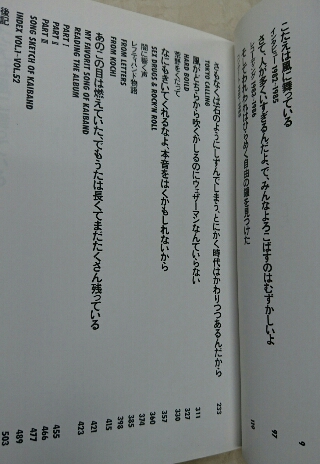 こたえは風に舞っている
9
インタビュー 1983-1985
さて人が多くいすぎるんだよで、みんなよろこばすのはむずかしいよ
97
そしてわれわれはひらめく自由の鐘を見つけた
さもなくば石のようにしずんでしまう、とにかく時代はかわりつつあるんだから
233
TOKYO CALLING
HARD BOILD
311
風がどちらから吹くかしるのにウェザーマンなんていらない
327
330
なにもきいてくれるなよ、本音をはくかもしれないから
357
SEX DRUGS & ROCK'N ROLL
360
374
レフティハンド物語
385
FROM LETTERS
398
FROM KOCHI
415
あのころ血は燃えていた、でもうたは長くてまだたくさん残っている
421
READING THE ALBUM
423
MY FAVORIT SONG OF KAIBAND
PART I
PART II
455
PART III
466
SONG SKETCH OF KAIBAND
477
INDEX VOL.1-VOL.52
489
後記
503